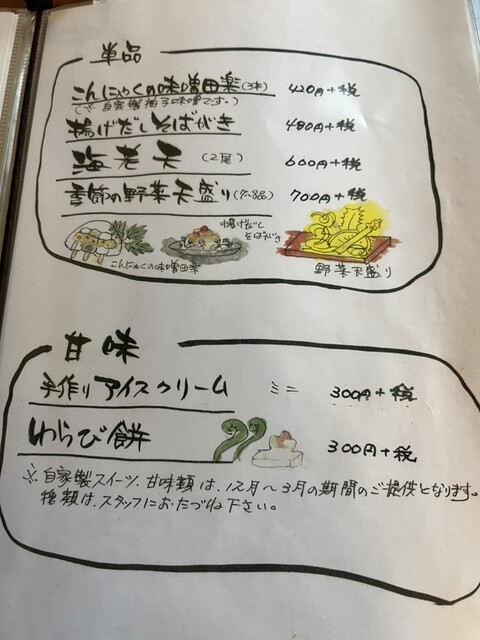 単品
こんにゃくの味噌田楽(3本) 420円+税
(※自家製柚子味噌です。)
揚げだしそばがき 480円+税
海老天 (2尾) 600円+税
季節の野菜天盛り(7〜8品) 700円+税
揚げだし
そばがき
こんにゃくの味噌田楽
野菜天盛り
甘味
手作りアイスクリーム ミニ 300円+税
わらび餅 300円+税
※自家製スイーツ、甘味類は、12月〜3月の期間のご提供となります。
種類は、スタッフにおたづね下さい。